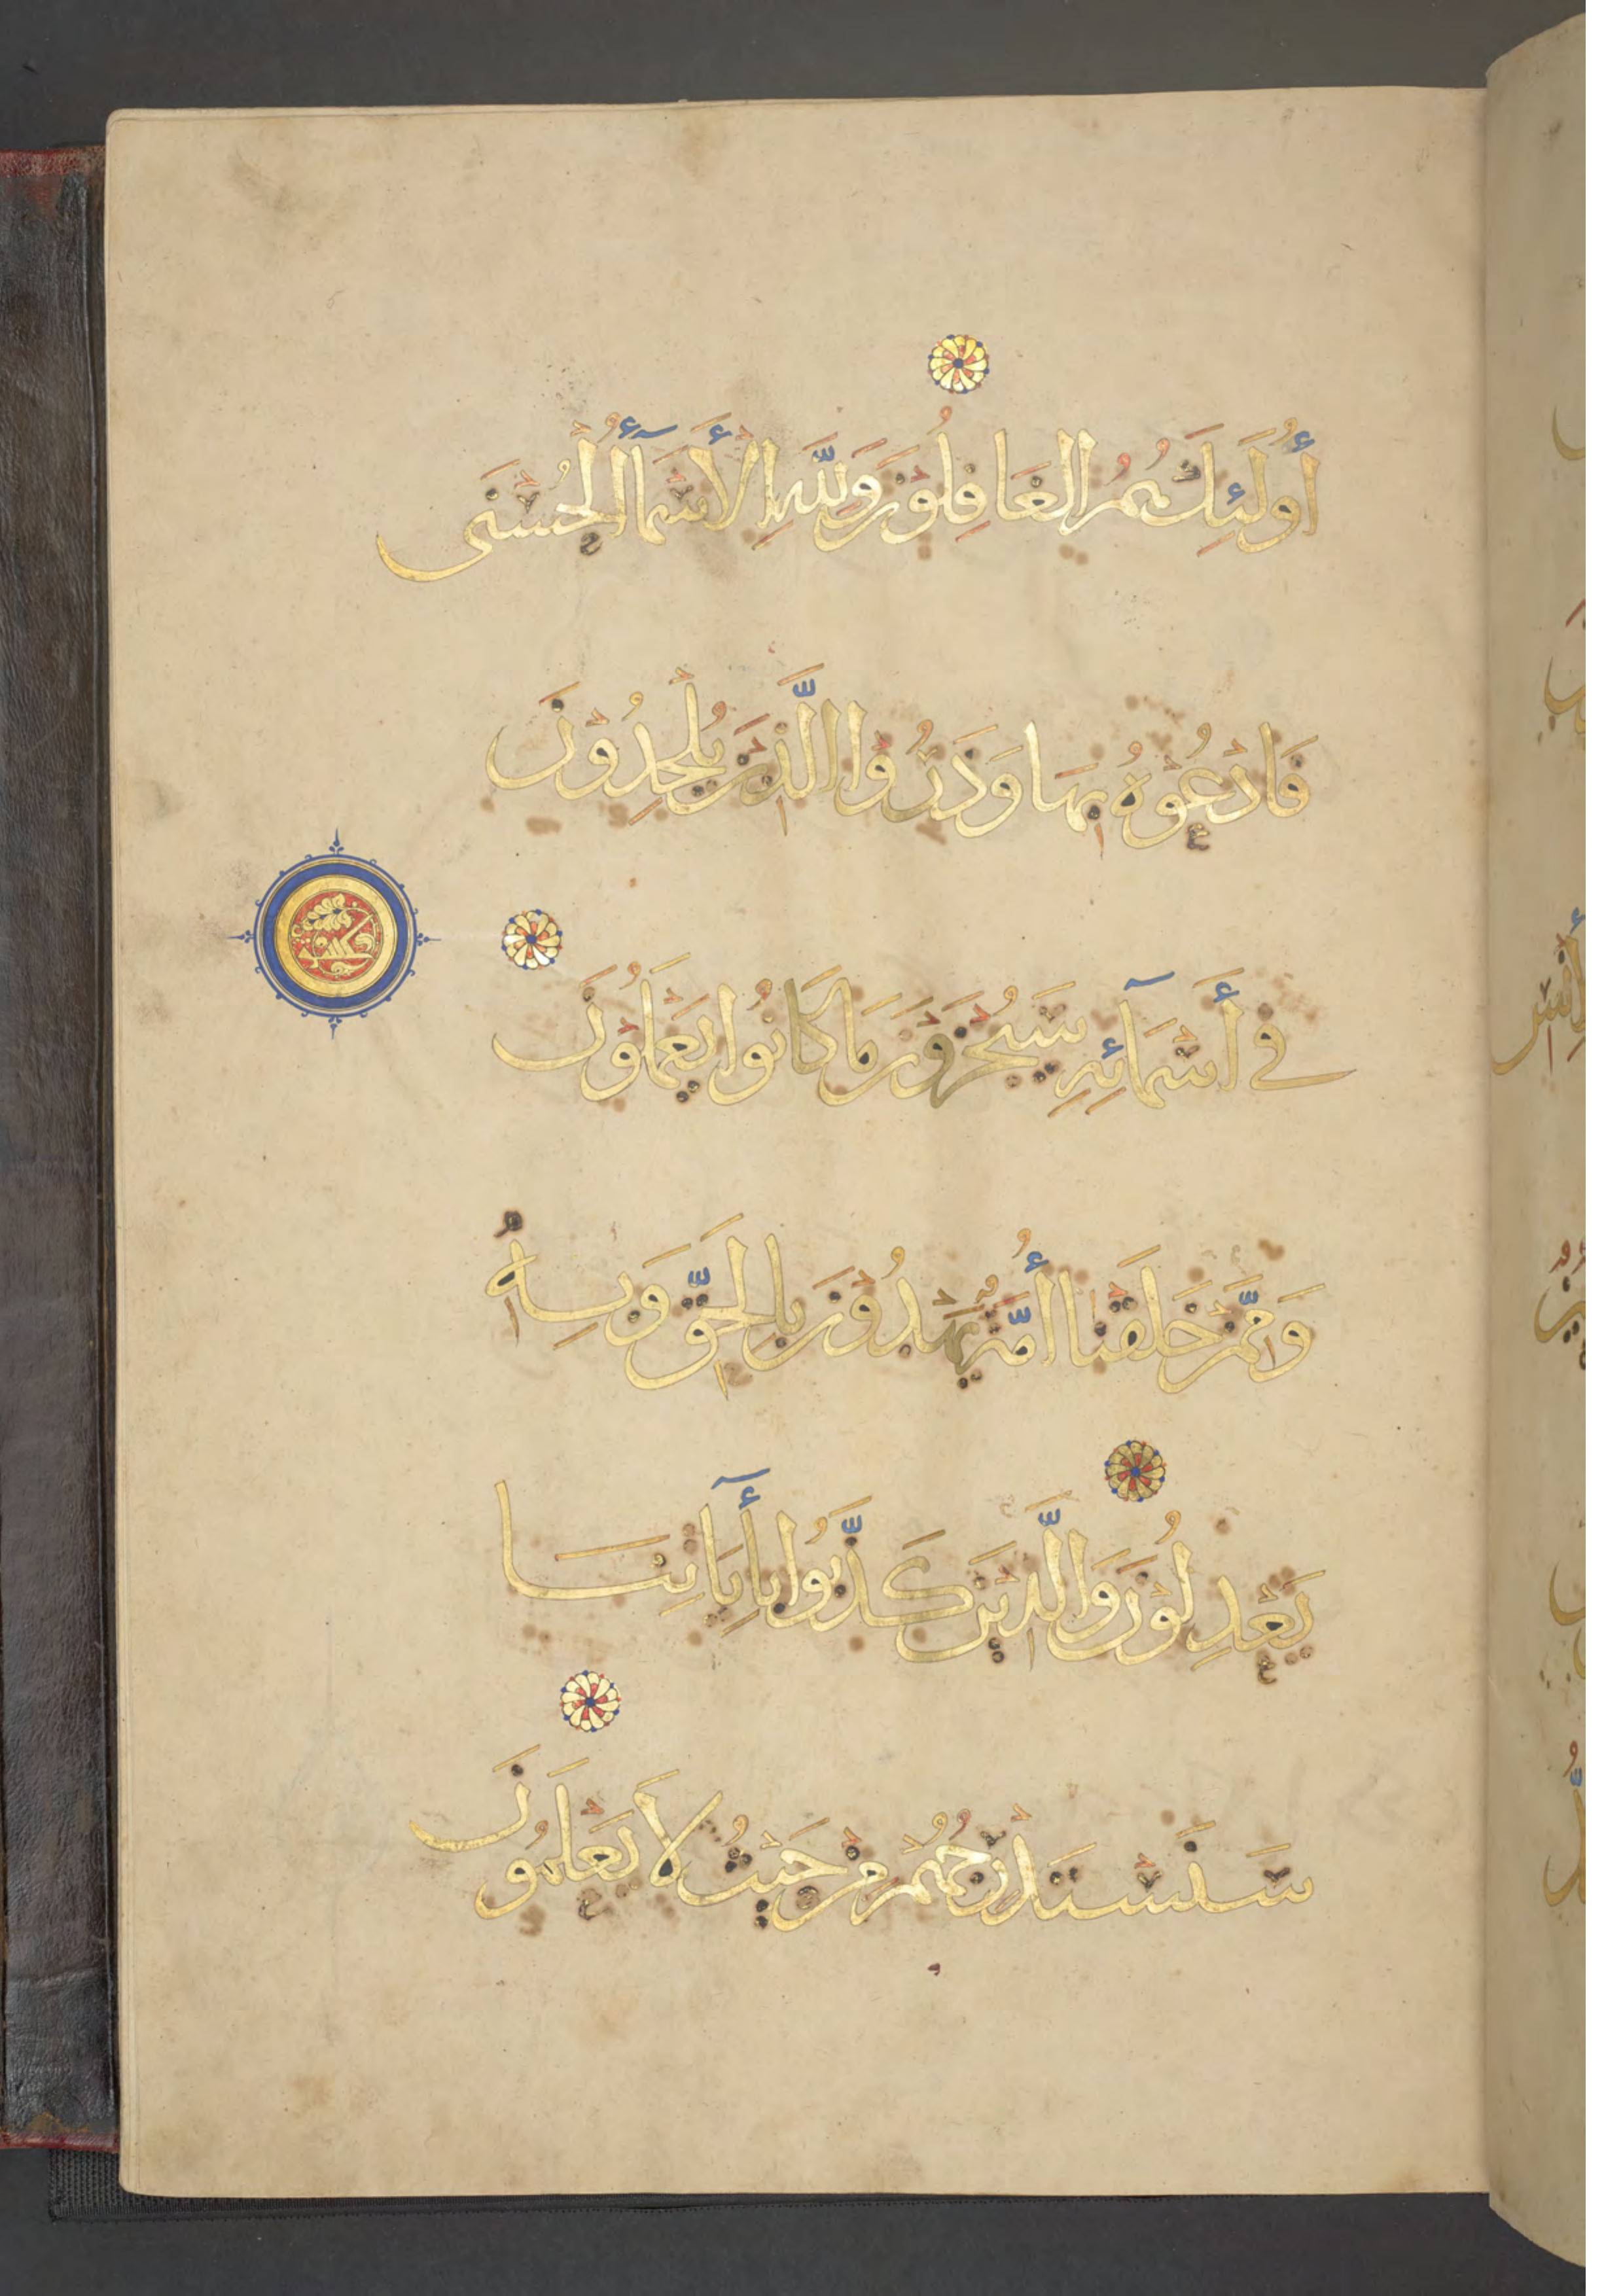 أُولَئِكَ هُمُ الْغَافِلُونَ وَلِلَّهِ الْأَسْمَآءُ الْحُسْنَى
فَادْعُوهُ بِهَا وَذَرُوا الَّذِينَ يُلْحِدُوْنَ
فِي أَسْمَآئِهِ سَيُجْزَوْنَ مَا كَانُوا يَعْمَلُوْنَ
وَمِمَّنْ خَلَقْنَا أُمَّةٌ يَهْدُوْنَ بِالْحَقِّ وَبِهِ
يَعْدِلُوْنَ وَالَّذِيْنَ كَذَّبُوا بِأَيَاتِنَا
سَنَسْتَدْرِجُهُمْ مِنْ حَيْثُ لَا يَعْلَمُونَ